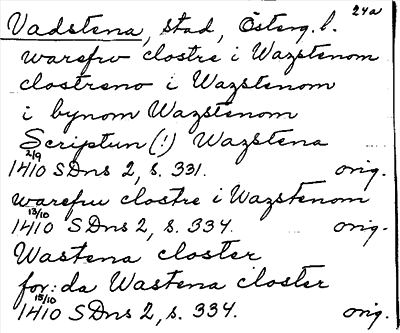 24a
Vadstena, stad, Österg. l.
warefrw clostre i Wazstenom
clostreno i Wazstenom
i bynom Wazstenom
Scriptun (!) Wazstena
2/9
1410 SDns 2, s. 331. orig.
warefru clostre i Wazstenom
13/10
1410 SDns 2, s. 334. orig.
Wastena closter
for: da Wastena closter
15/10
1410 SDns 2, s. 334. orig.